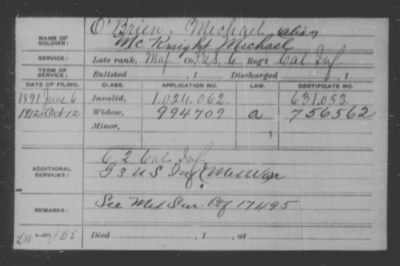 NAME OF SOLDIER: O'Brien, Michael alias
McKnight Michael
SERVICE: Late rank, co. 6 Reg't Cal Inf.
TERM OF SERVICE: Enlisted , 1 Discharged , 1
DATE OF FILING. CLASS. APPLICATION NO. LAW. CERTIFICATE NO.
1891 June 6 Invalid, 1.024.062. 631.053
1912 Oct 12 Widow, 994709 a 756562
Minor,
ADDITIONAL SERVICES: C 2 Cal Inf.
G 3 U S Inf Mex War
REMARKS: See Mex Sur Ctf 17495
Died , 1 , at